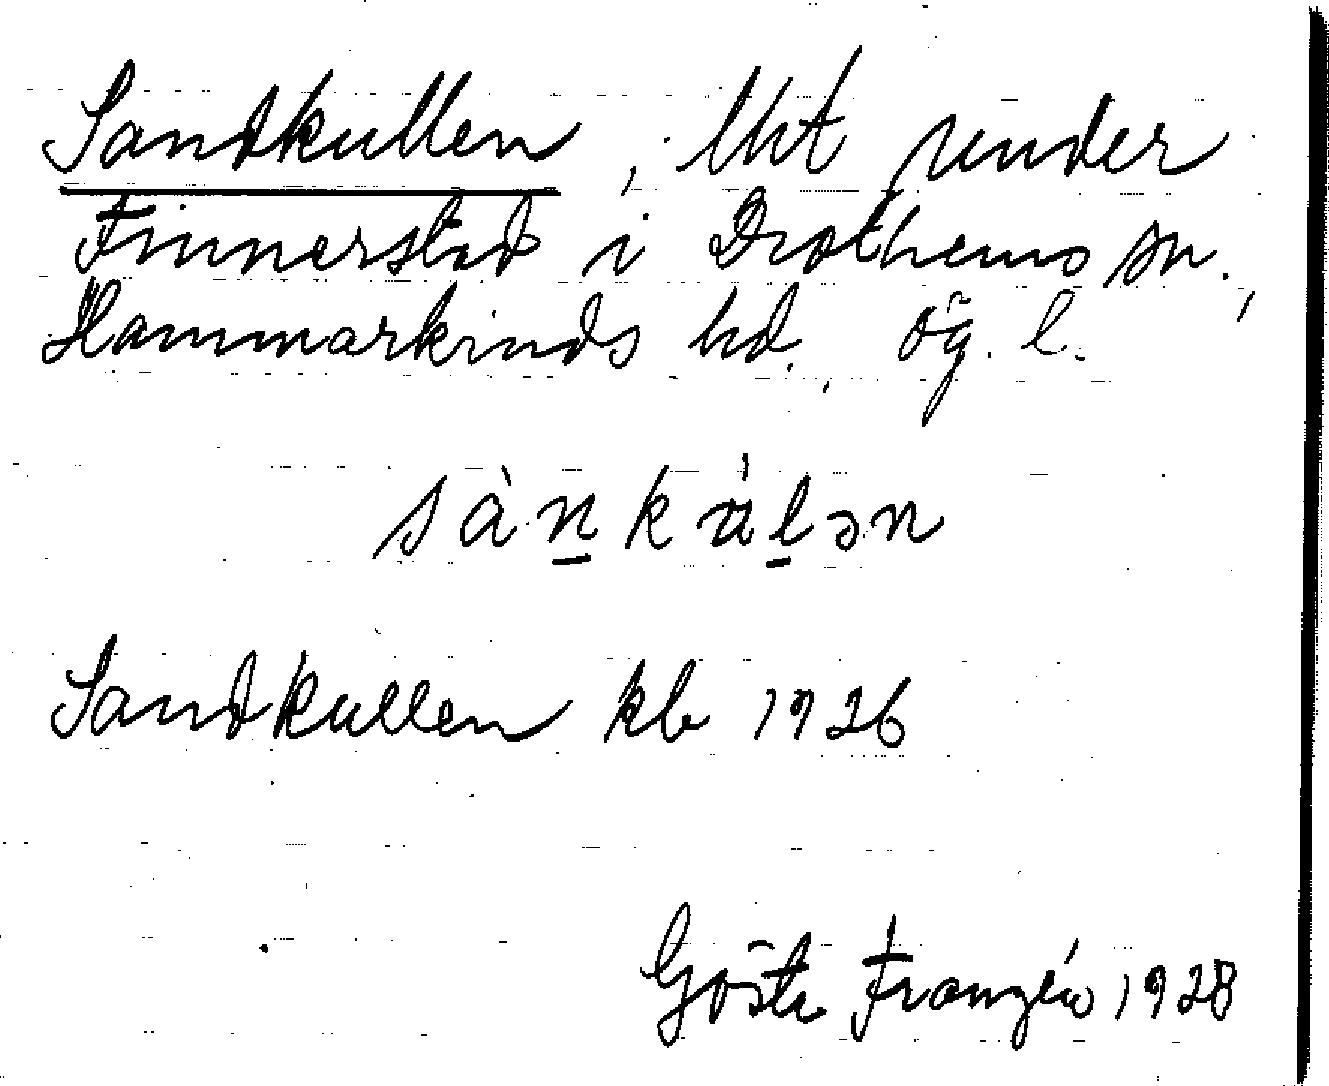 Sandkullen, lht under
Finnerstad i Drothems sn.,
Hammarkinds hd., ög. l.
sàn̲kàl̲ən
Sandkullen kb 1926
Gösta Franzén 1928